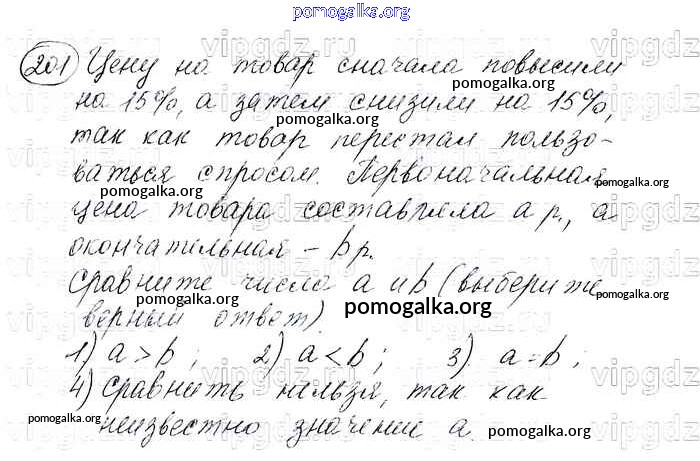 pomogalka.org
201 Цену на товар сначала повысили
на 15%, а затем снизили на 15%,
pomogalka.org
так как товар перестал пользо-
ваться спросом. Первоначальная
pomogalka.org pomogalka.org
цена товара составляла а р., а
окончательная – b р.
сравните числа а и b (выберите
pomogalka.org pomogalka.org pomogalka.org
верный ответ).
1) a > b; 2) a < b; 3) a = b;
4) сравнить нельзя, так как
неизвестно значение а.
pomogalka.org pomogalka.org
vipgdz.ru